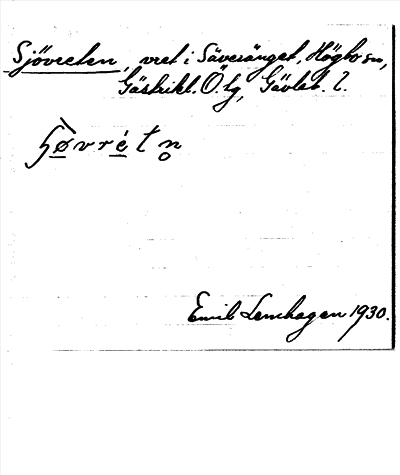 Sjövreten, vret i Säversänget, Högbo sn,
Gästrikl. Ö. tg, Gävleb. l.
ɧø̀vrét n̥
Emil Lenhagen 1930.